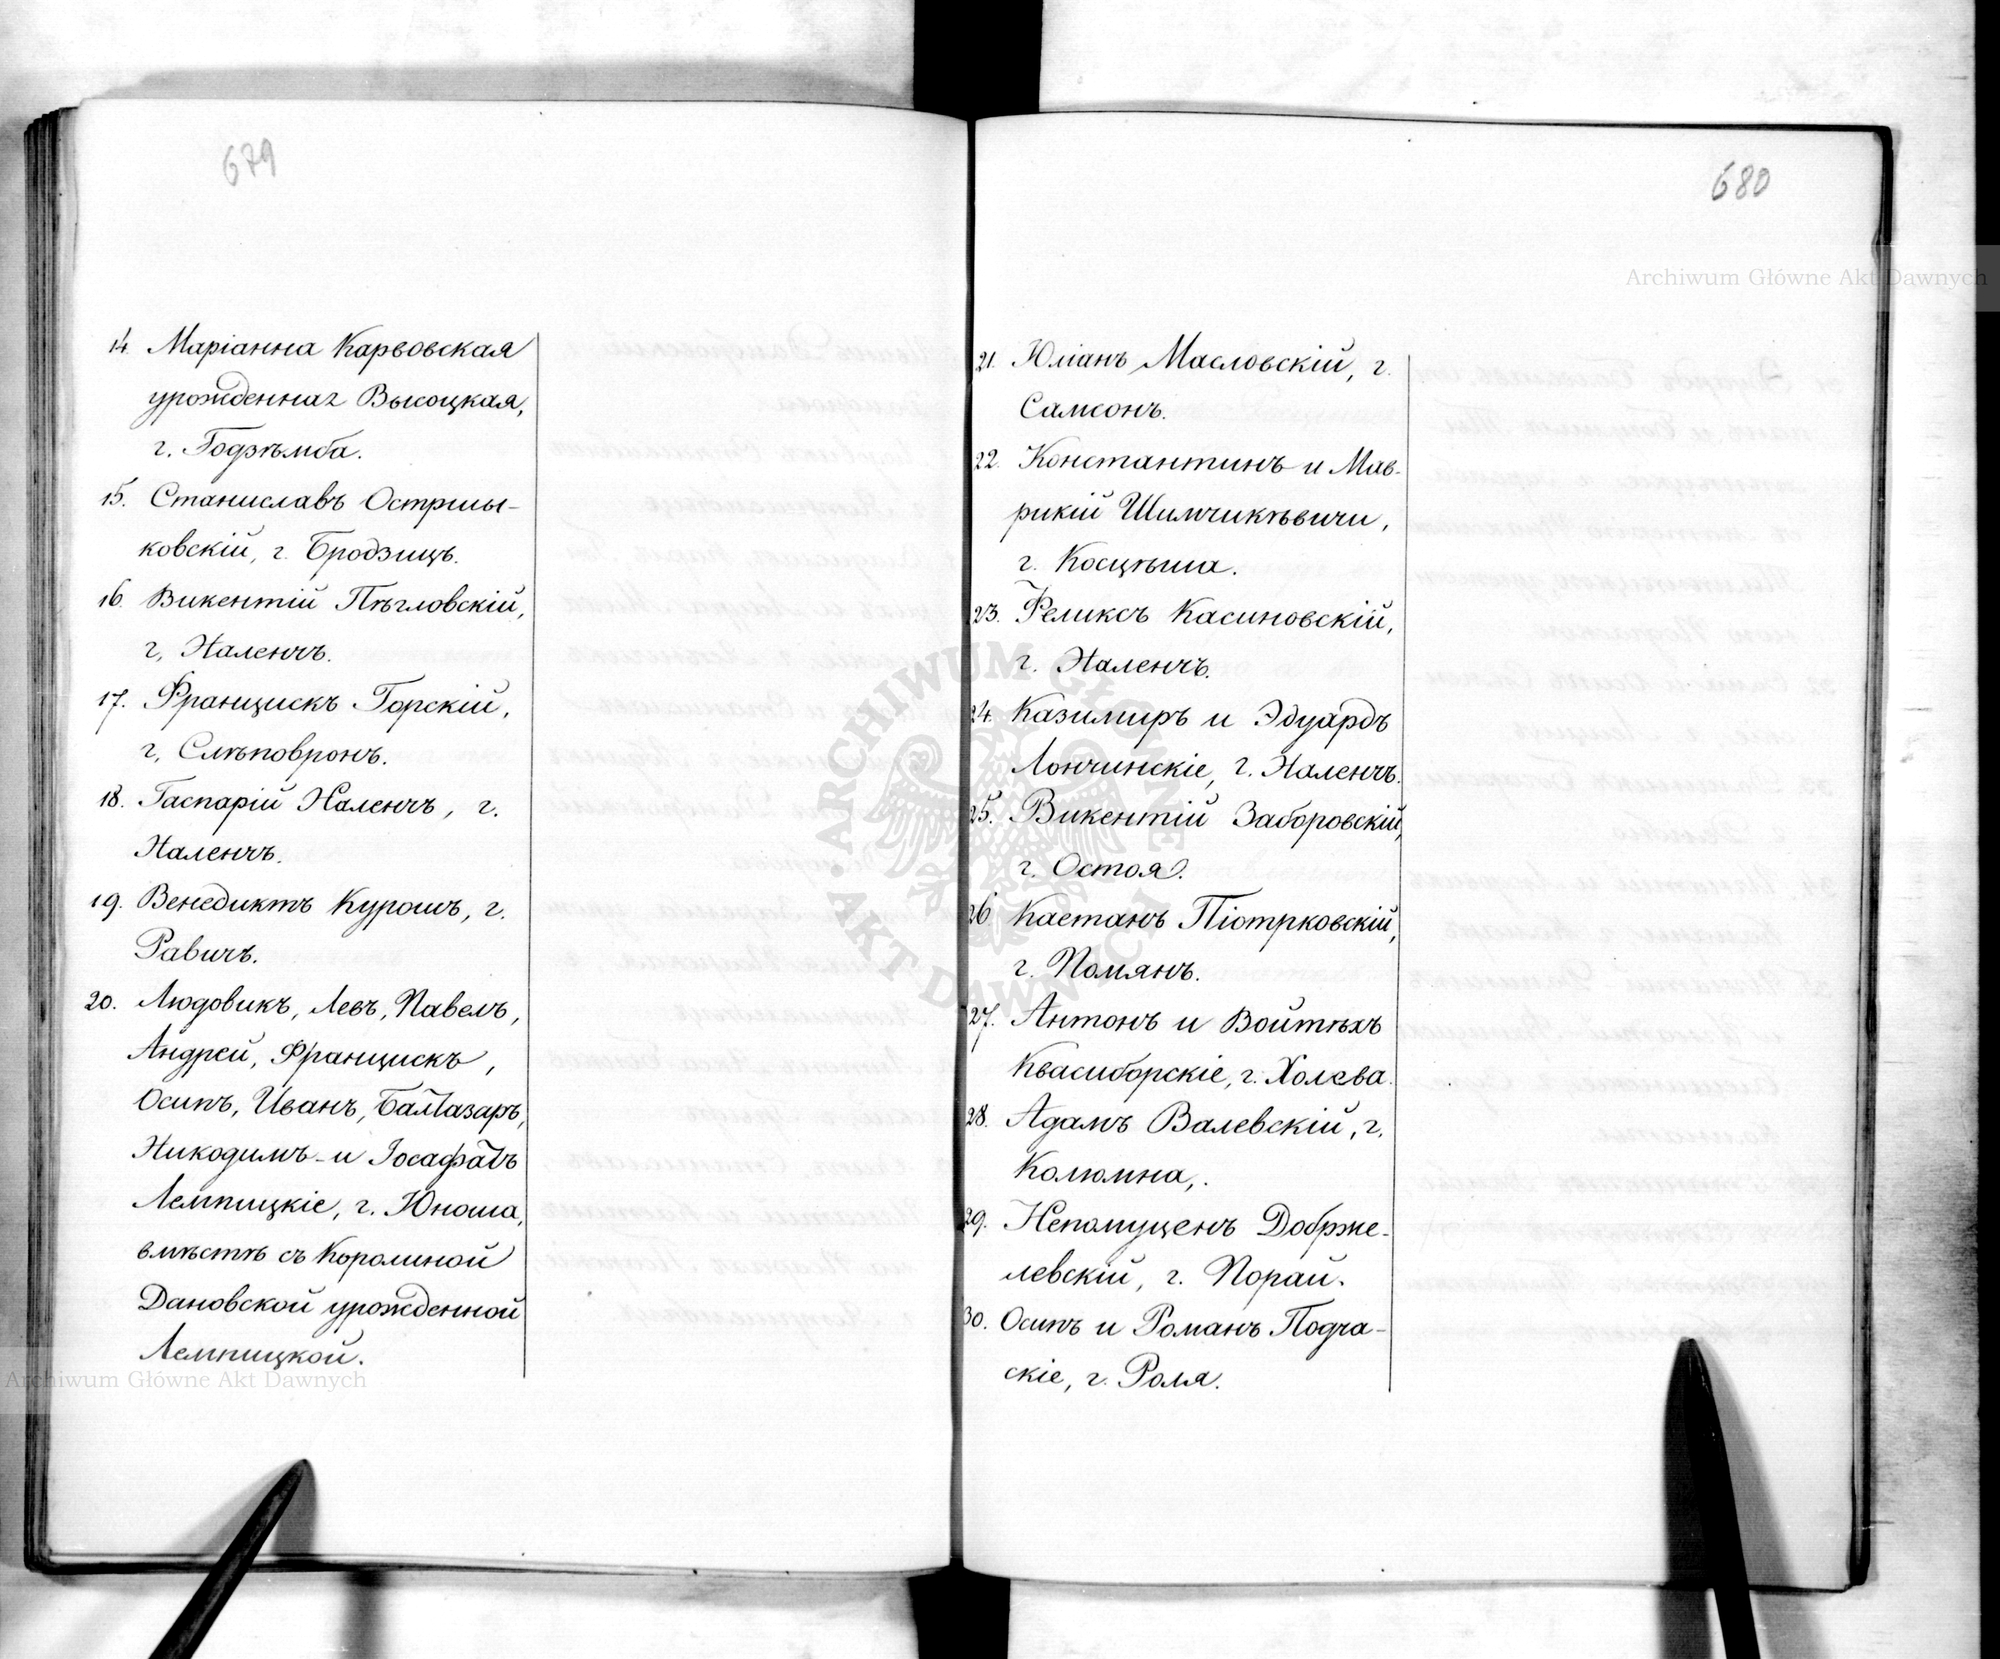 679
14. Маріанна Карвовская
урожденная Высоцкая,
г. Годзѣмба.
15. Станиславъ Остршы-
ковскій, г. Бродзицъ.
16. Викентій Пѣгловскій,
г. Наленчъ.
17. Францискъ Горскій,
г. Слѣповронъ.
18. Гаспарій Наленчъ, г.
Наленчъ.
19. Венедиктъ Курошъ, г.
Равичъ.
20. Людовикъ, Левъ, Павелъ,
Андрей, Францискъ,
Осипъ, Иванъ, Балтазаръ,
Никодимъ и Іосафатъ
Лемпицкіе, г. Юноша,
вмѣстѣ съ Каролиной
Дановской урожденной
Лемпицкой.
680
21. Юліанъ Масловскій, г.
Самсонъ.
22. Константинъ и Мав-
рикій Шимчикѣвичи,
г. Косцѣша.
23. Феликсъ Касиновскій,
г. Наленчъ.
24. Казимиръ и Эдуардъ
Лончинскіе, г. Наленчъ.
25. Викентій Заборовскій,
г. Остоя.
26. Каетанъ Піотрковскій,
г. Помянъ.
27. Антонъ и Войтѣхъ
Квасиборскіе, г. Холева.
28. Адамъ Валевскій, г.
Колюмна,.
29. Непомуценъ Добрже-
левскій, г. Порай.
30. Осипъ и Романъ Подча-
скіе, г. Роля.
Archiwum Główne Akt Dawnych
Archiwum Główne Akt Dawnych
ARCHIWUM GŁÓWNE AKT DAWNYCH